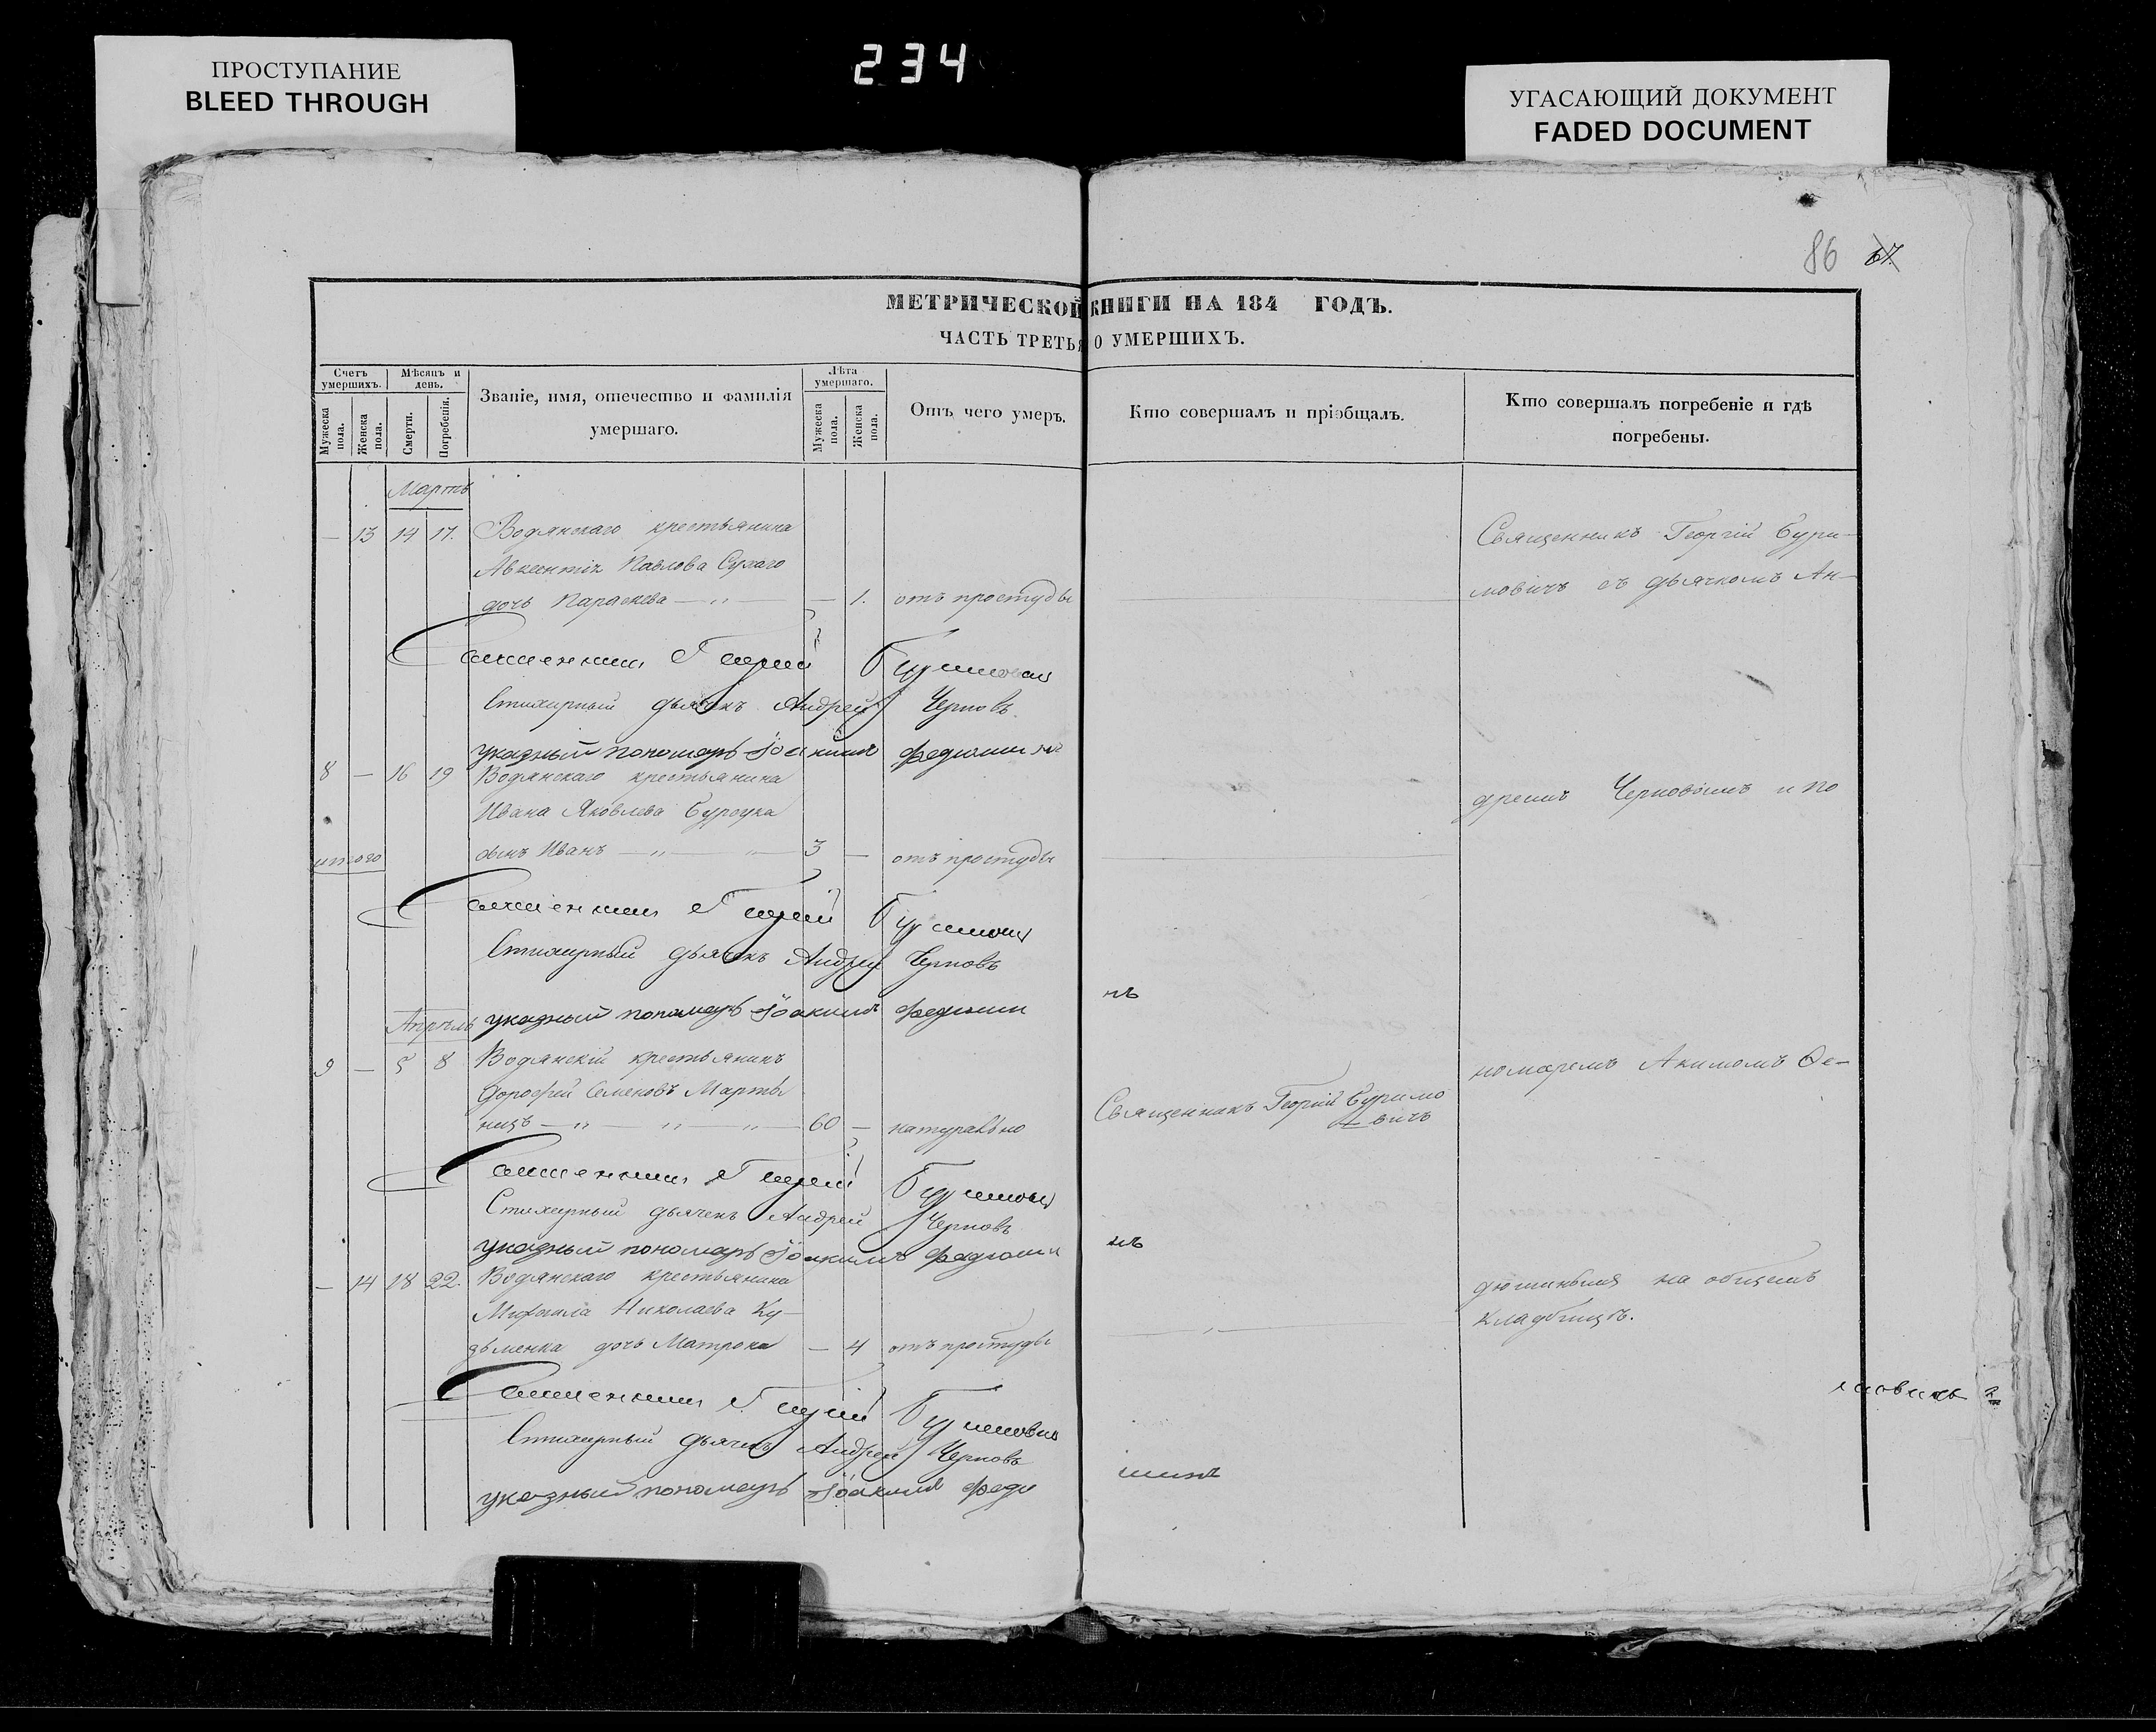 ПРОСТУПАНИЕ
BLEED THROUGH
234
УГАСАЮЩИЙ ДОКУМЕНТ
FADED DOCUMENT
86 67.
МЕТРИЧЕСКОЙ КНИГИ НА 184 ГОДЪ.
ЧАСТЬ ТРЕТЬЯ О УМЕРШИХЪ.
Счетъ умершихъ.
Мужеска пола.
Женска пола.
Мѣсяцъ и день.
Смерти.
Погребенія.
Званіе, имя, отечество и фамилія
умершаго.
Лѣта умершаго.
Мужеска пола.
Женска пола.
Отъ чего умеръ.
Кто совершалъ и пріобщалъ.
Кто совершалъ погребеніе и гдѣ
погребены.
Мартъ
— 13 14 17. Водянскаго крестьянина
Священникъ Георгій Бури-
Авксентія Павлова Сухаго
мовичъ съ дьячкомъ Ан-
дочь Параскева — „ — — 1. отъ простуды
Священникъ Георгій Буримовичъ
Стихирный дьячекъ Андрей Черновъ
указный пономарь Іоакимъ Федюшинъ
8 — 16 19 Водянскаго крестьянина
дреемъ Черновымъ и по
Ивана Яковлева
итого сынъ Иванъ — „ — „ — 3 — отъ простуды
Священникъ Георгій Буримовичъ
Стихирный дьячекъ Андрей Черновъ
Апрѣль указный пономарь Іоакимъ Федюши нъ
9 — 5 8 Водянскій крестьянинъ
номаремъ Акимомъ Фе-
Дорофей Семеновъ Марты
Священникъ Георгій Буримо
вичъ
нецъ — „ — „ — „ — 60 — натурально
Священникъ Георгій Буримовичъ
Стихирный дьячекъ Андрей Черновъ
указный пономарь Іоакимъ Федюши нъ
— 14 18 22. Водянскаго крестьянина
дюшинымъ на общемъ
Михаила Николаева Ку-
кладбищѣ.
дочь Матрона — 4 отъ простуды
Священникъ Георгій Буримовичъ
Стихирный дьячекъ Андрей Черновъ
указный пономарь Іоакимъ Федю шинъ